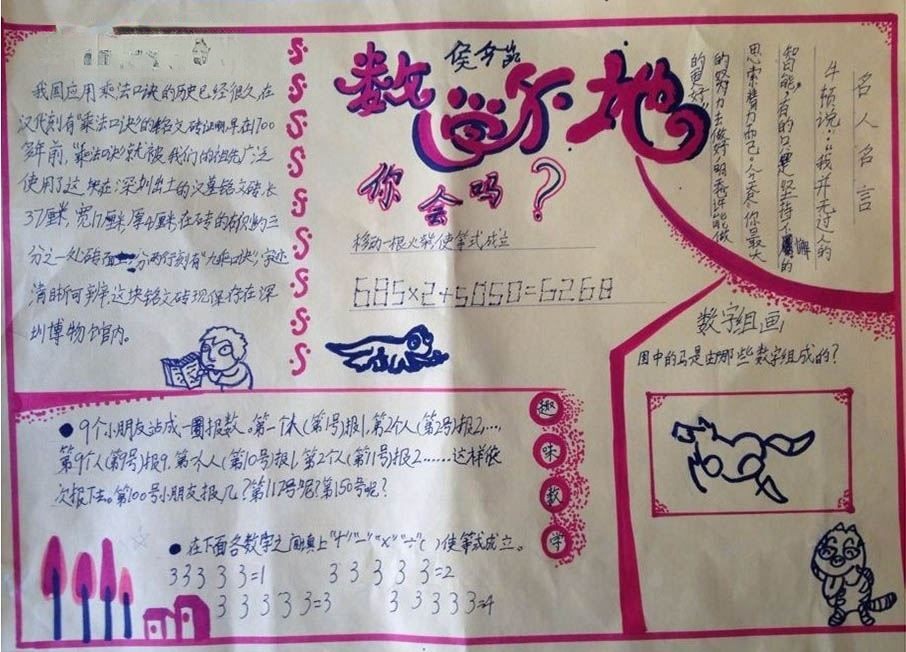 我国应用乘法口诀的历史已经很久,在
汉代刻有"乘法口诀"的铭文砖证明,早在1700
多年前,"乘法口诀"就被我们的祖先广泛
使用了。
在深圳出土的汉墓铭文砖长
37厘米,宽17厘米,厚4厘米,在砖的
三
分之一处
分两行刻有"九乘口诀",字迹
清晰可辨,这块铭文砖现保存在深
圳博物馆内。
数学
地
你会吗?
移动一根火柴使等式成立
685×2+5050=6268
名人名言
牛顿说:"我并无过人的
智能,有的只是坚持不懈的
思索精力而已。今天尽你最大
的努力去做好,明天你就能做
的更好。"
数字组画
图中的马是由那些数字组成的?
趣味数学
●9个小朋友站成一圈报数。第一个人(第1号)报1,第2个人(第2号)报2,…,
第9个人(第9号)报9,第
人(第10号)报1,第2个人(第11号)报2……这样依
次报下去。第100号小朋友报几?第112号呢?第150号呢?
●在下面各数字之间填上"+""-""×""÷"( )使等式成立。
3 3 3 3 3=1 3 3 3 3 3=2
3 3 3 3 3=3 3 3 3 3 3=4